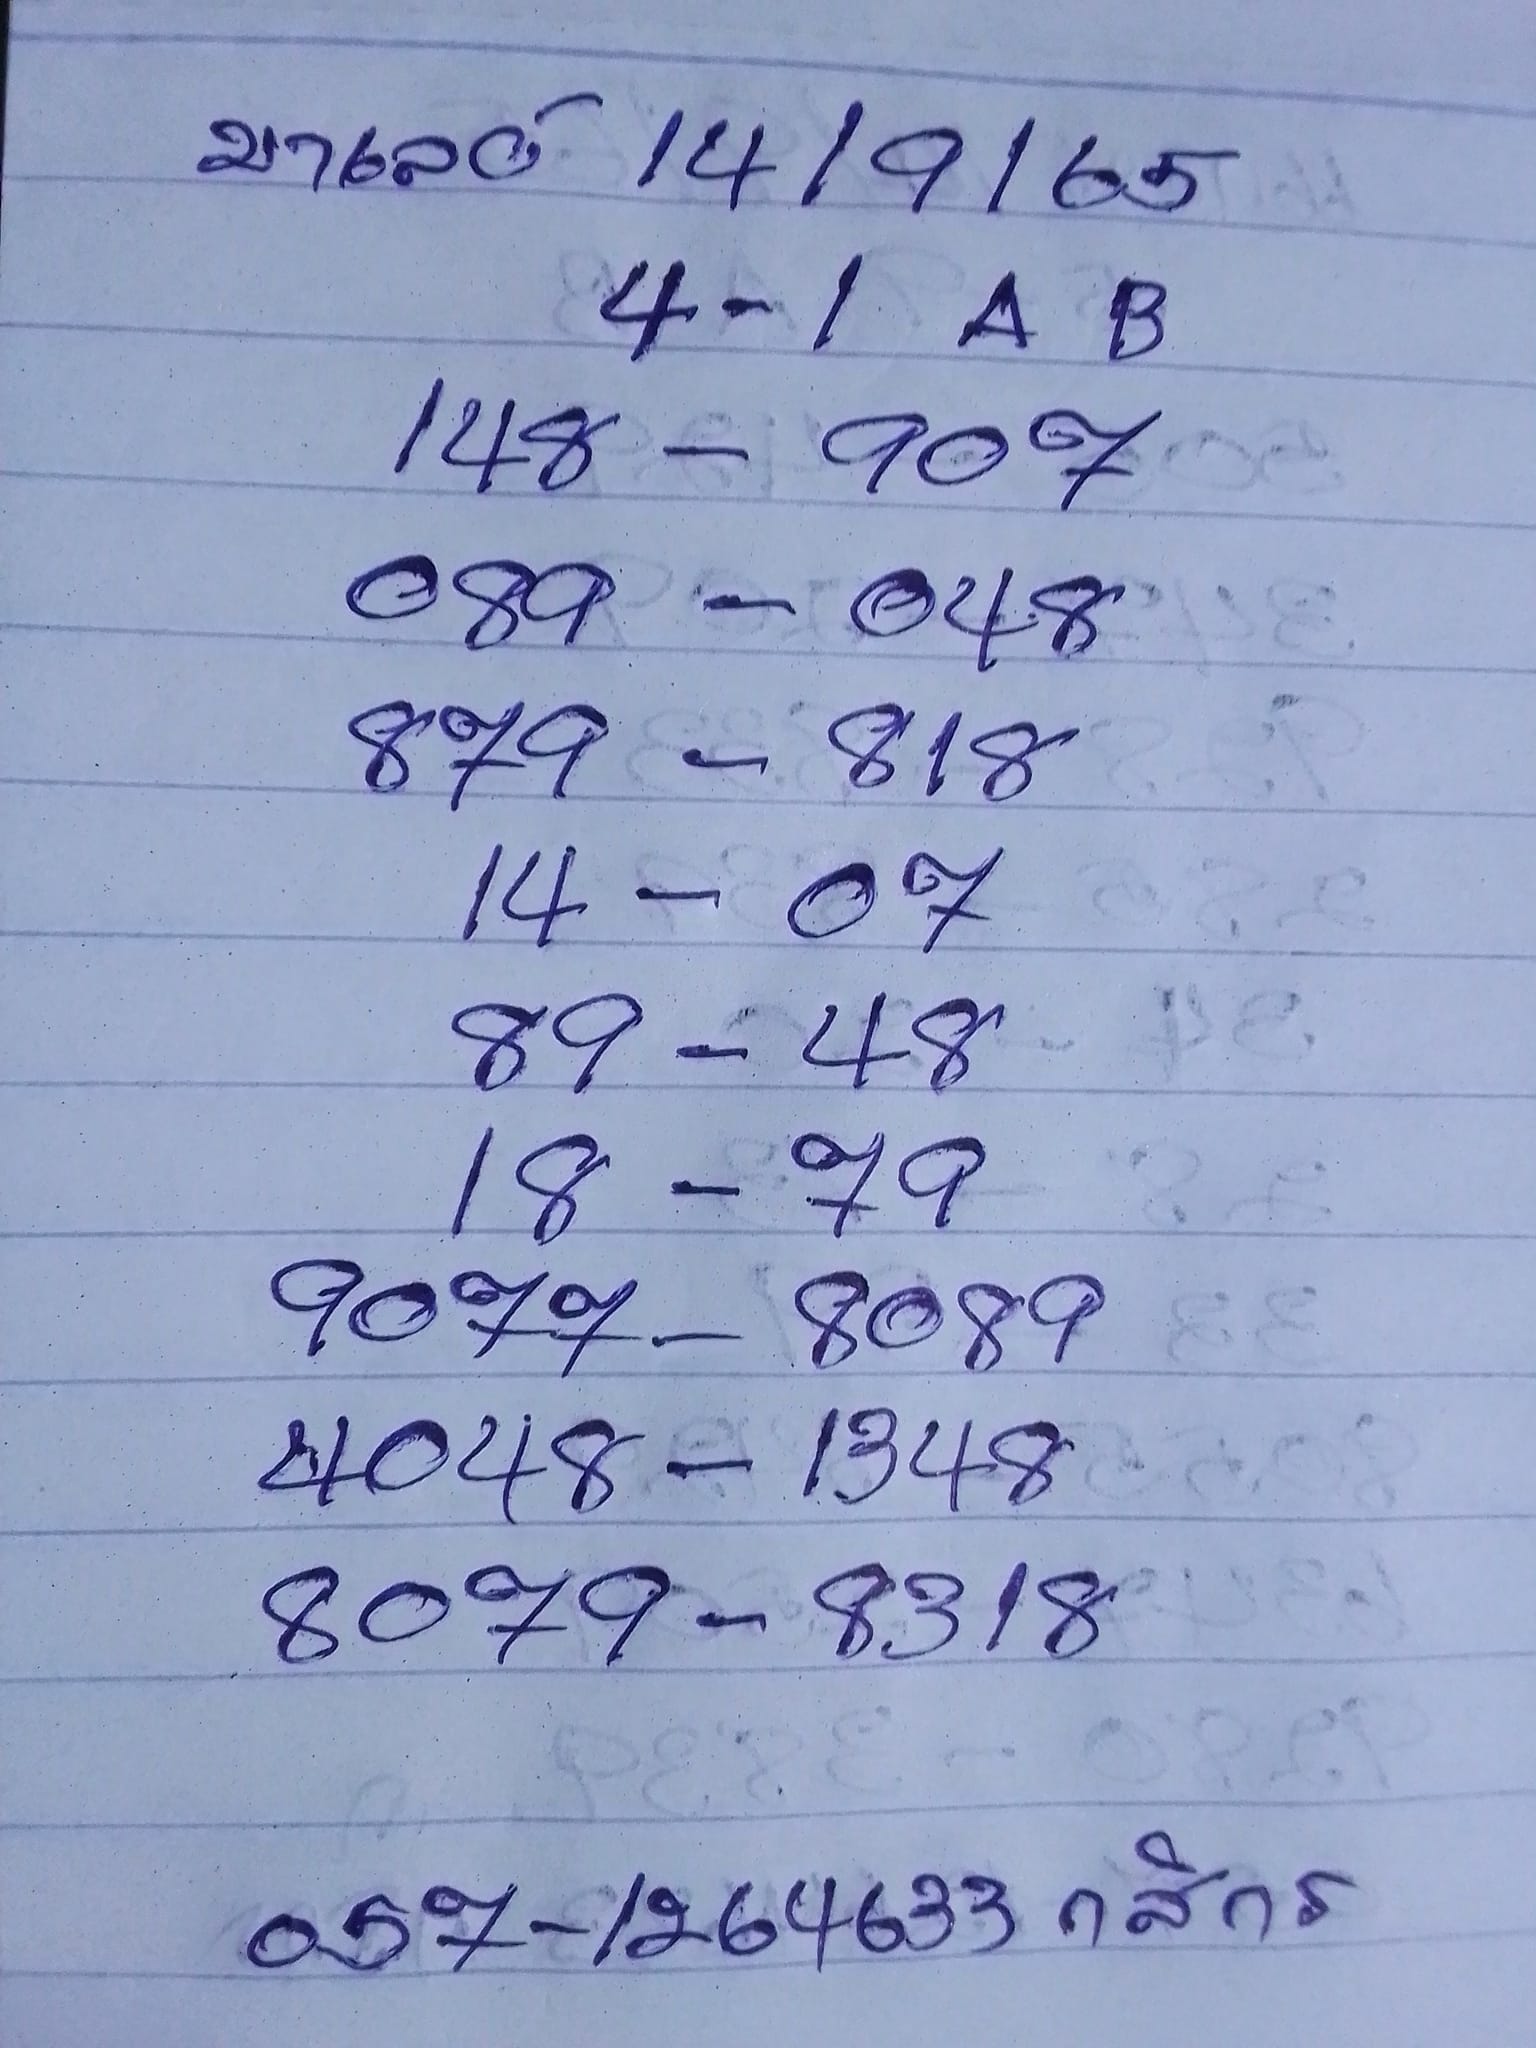 มาเลย์ 14/9/65
4-1 A B
148-907
089-048
879-818
14-07
89-48
18-79
9077-8089
4048-1348
8079-8318
057-1264633 กสิกร